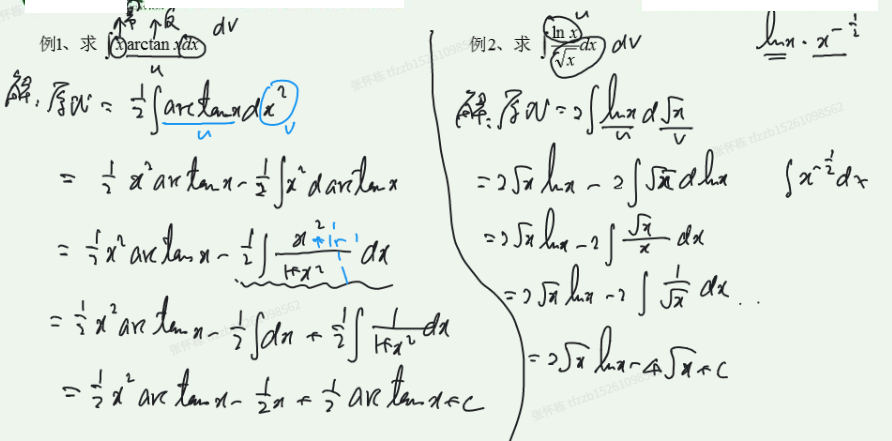 幂 反 dv
例1、求 ∫x arctan x dx
u
解:原式 = 1/2 ∫arctanx dx²
u v
= 1/2 x² arctanx - 1/2 ∫x² d arctanx
= 1/2 x² arctanx - 1/2 ∫ (x²+1-1)/(1+x²) dx
= 1/2 x² arctanx - 1/2 ∫dx + 1/2 ∫ 1/(1+x²) dx
= 1/2 x² arctanx - 1/2 x + 1/2 arctanx + C
u
例2、求 ∫ ln x/√x dx dv
lnx · x^(-1/2)
解:原式 = 2∫lnx d√x
u v
= 2√x lnx - 2∫√x dlnx
∫x^(-1/2) dx
= 2√x lnx - 2∫ √x/x dx
= 2√x lnx - 2∫ 1/√x dx ..
= 2√x lnx - 4√x + C
张怀栋 tfzzb15261098562